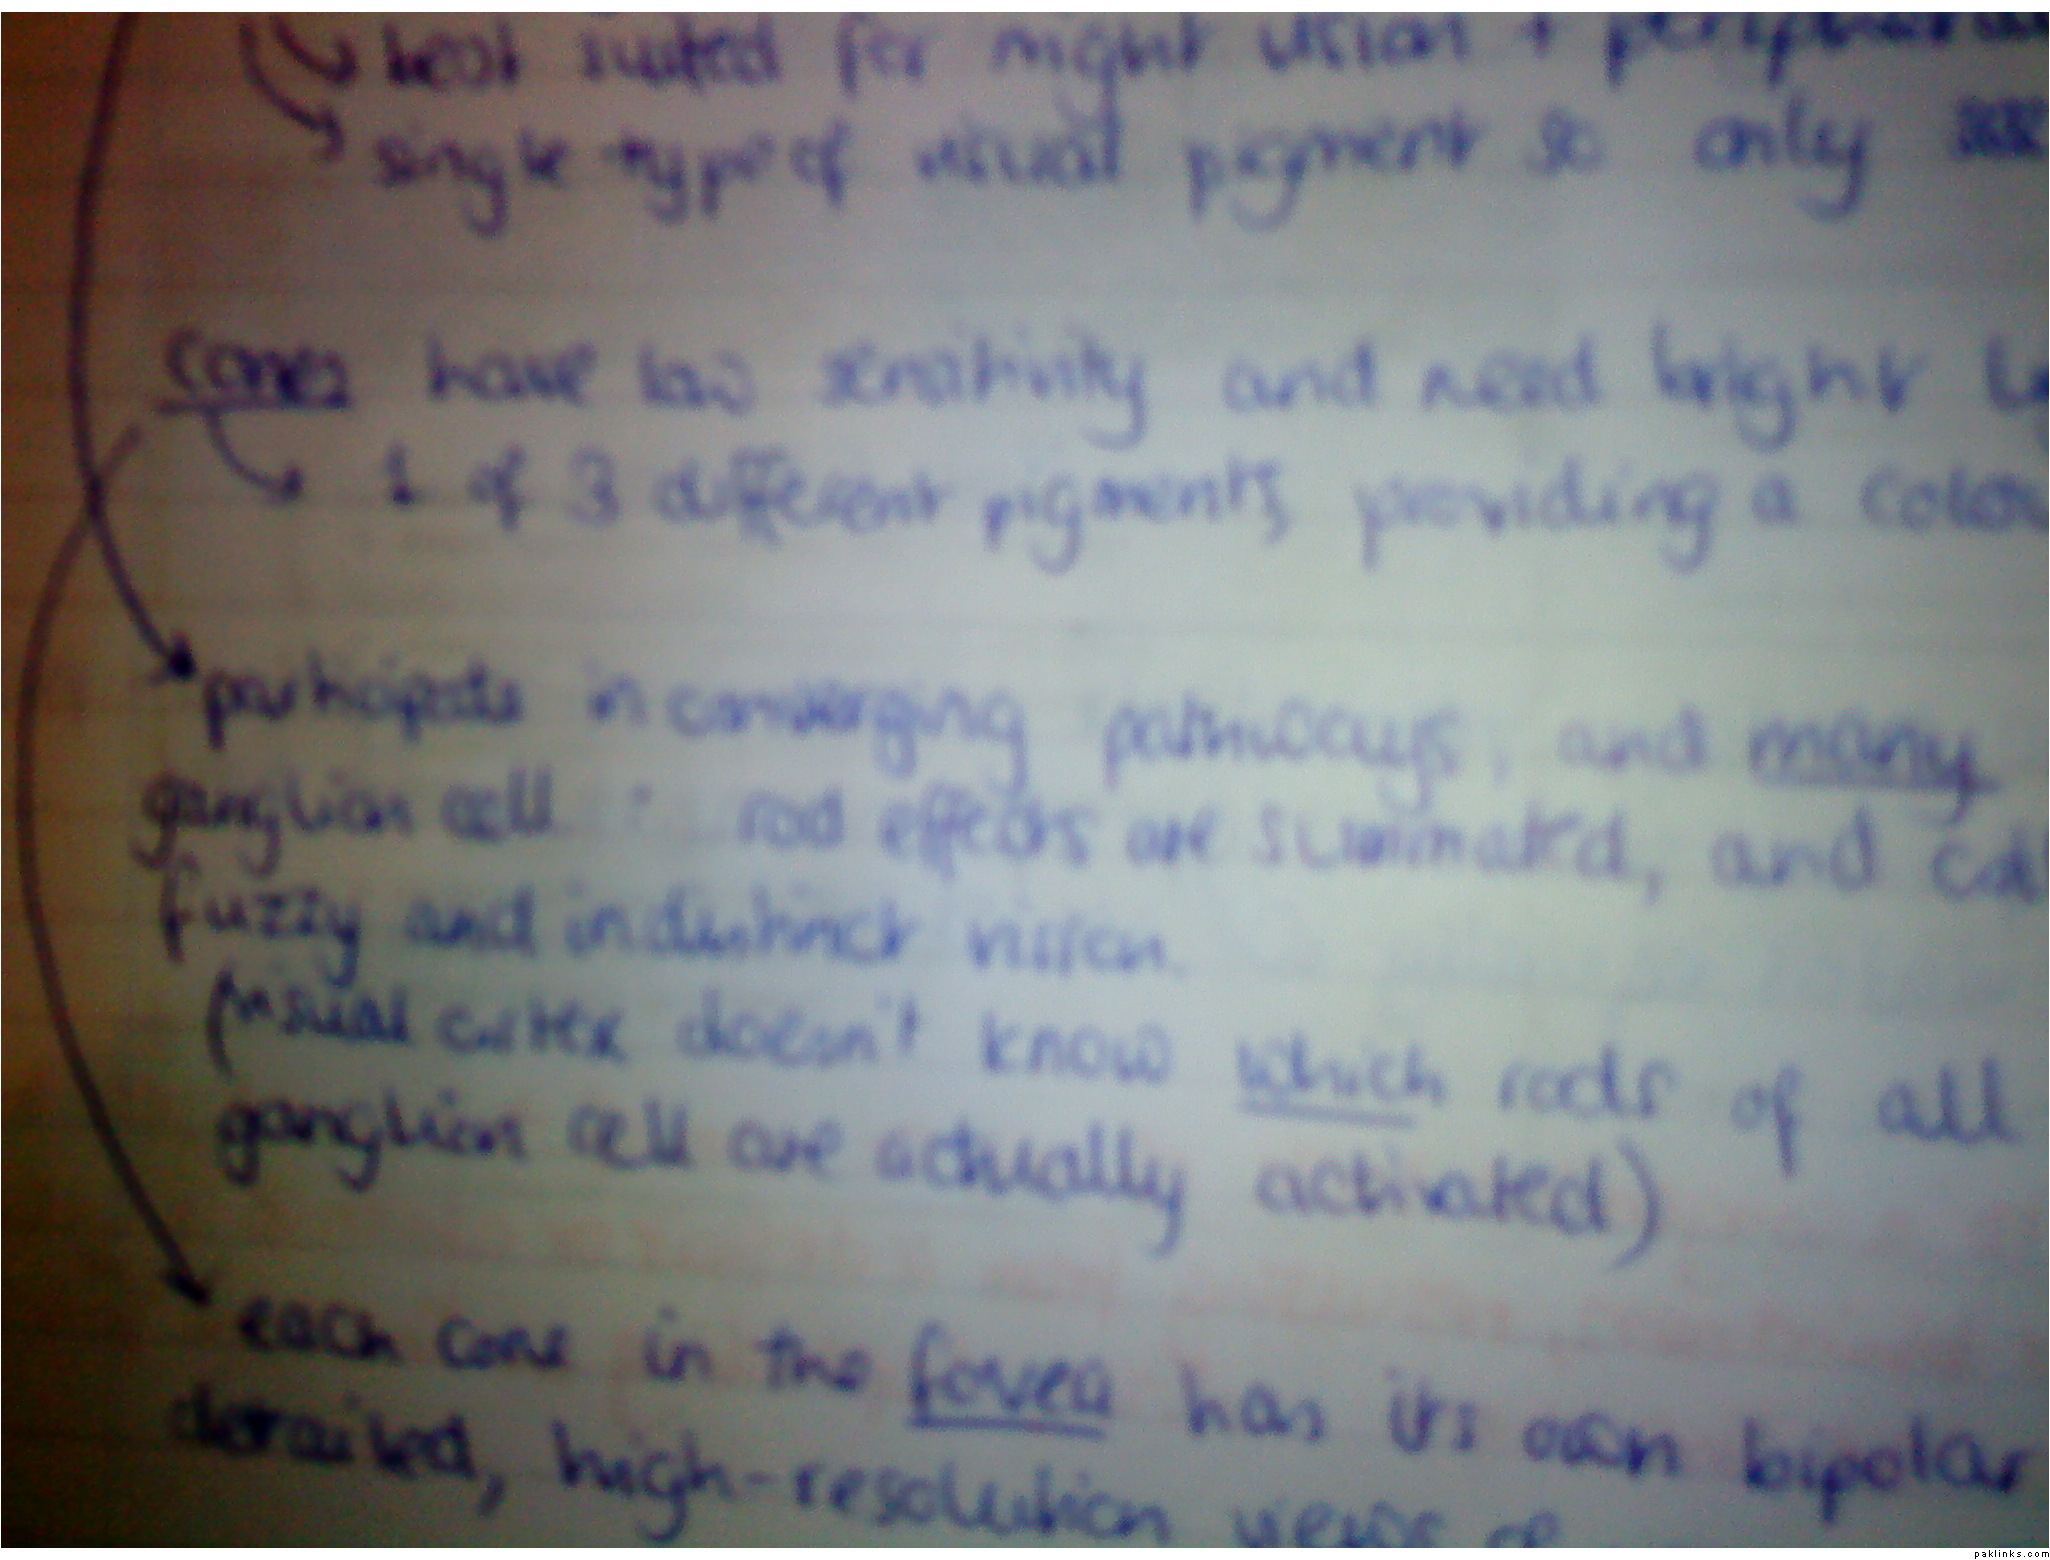 best suited for night vision + peripheral
single type of visual pigment so only
cones have low sensitivity and need bright
1 of 3 different pigments, providing a
participate in converging pathways, and many
ganglion cell : rod effects are summated, and
fuzzy and indistinct vision.
(visual cortex doesn't know which rods of all
ganglion cell are actually activated)
each cone in the fovea has its own bipolar
detailed, high-resolution views of
paklinks.com